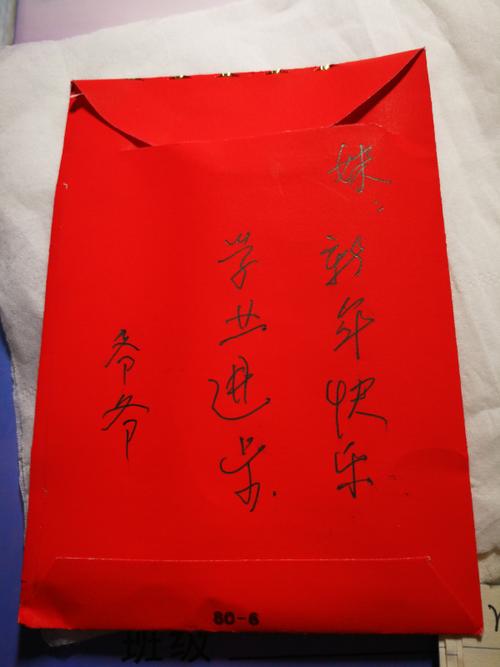 妹妹
新年快乐
学业进步.
爷爷
80-6
班级